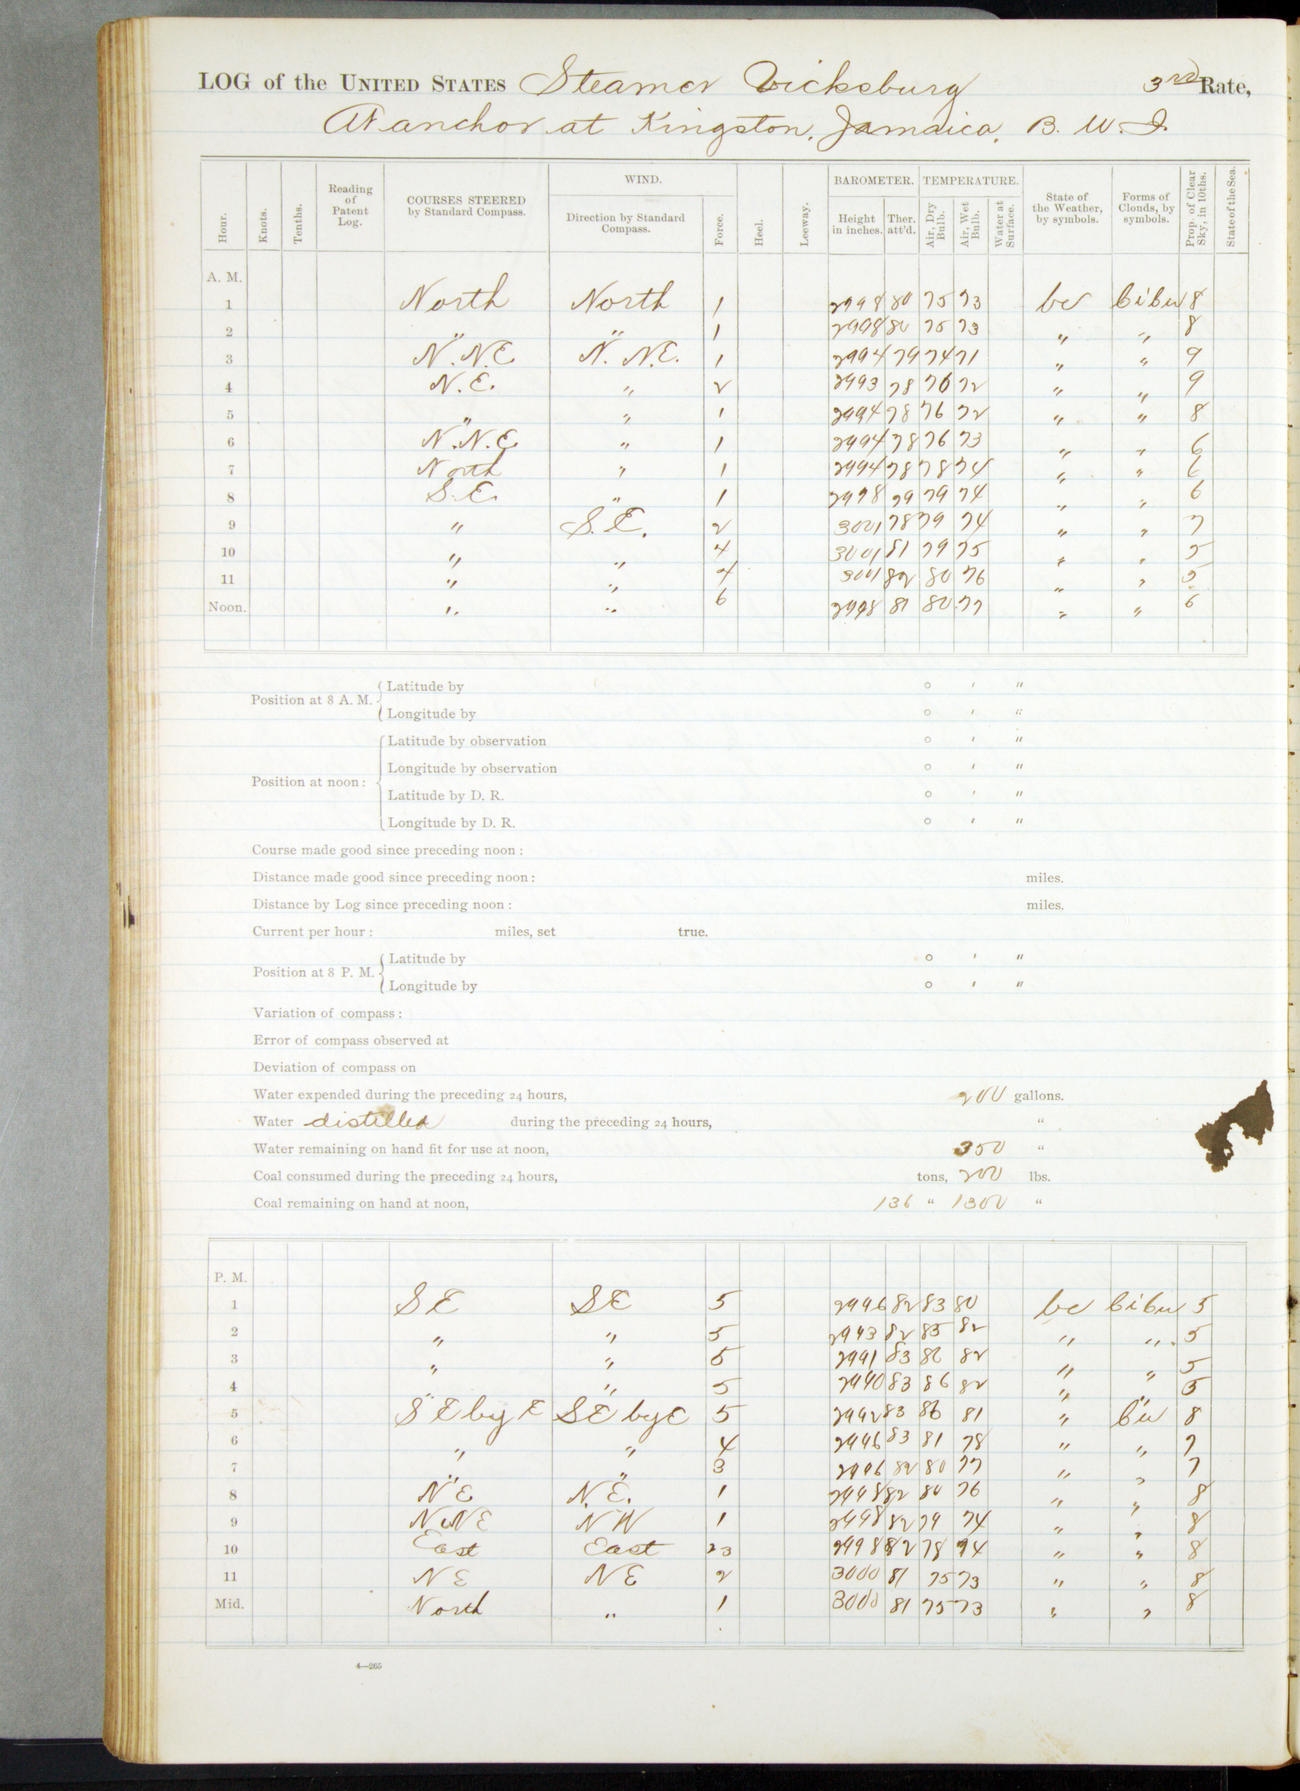 LOG of the UNITED STATES Steamer Vicksburg 3rd Rate,
At anchor at Kingston, Jamaica, B. W. I.
Hour. Knots. Tenths. Reading of Patent Log. COURSES STEERED by Standard Compass. WIND. Direction by Standard Compass. Force. Heel. Leeway. BAROMETER. Height in inches. Ther. att'd. TEMPERATURE. Air, Dry Bulb. Air, Wet Bulb. Water at Surface. State of the Weather, by symbols. Forms of Clouds, by symbols. Prop. of Clear Sky, in 10ths. State of the Sea.
A. M.
1 North North 1 2998 80 75 73 bc Cicu 8
2 " " 1 2998 80 75 73 " " 8
3 N.N.E. N.N.E. 1 2994 79 74 71 " " 9
4 N.E. " 2 2993 78 76 72 " " 9
5 " " 1 2994 78 76 72 " " 8
6 N.N.E " 1 2994 78 76 73 " " 6
7 North " 1 2994 78 78 74 " " 6
8 S.E. " 1 2998 79 79 74 " " 6
9 " S.E. 2 3001 78 79 74 " " 7
10 " " 4 3001 81 79 75 " " 5
11 " " 4 3001 82 80 76 " " 5
Noon. " " 6 2998 81 80 77 " " 6
Position at 8 A. M. Latitude by ° ' "
Longitude by ° ' "
Position at noon: Latitude by observation ° ' "
Longitude by observation ° ' "
Latitude by D. R. ° ' "
Longitude by D. R. ° ' "
Course made good since preceding noon:
Distance made good since preceding noon: miles.
Distance by Log since preceding noon: miles.
Current per hour: miles, set true.
Position at 8 P. M. Latitude by ° ' "
Longitude by ° ' "
Variation of compass:
Error of compass observed at
Deviation of compass on
Water expended during the preceding 24 hours, 200 gallons.
Water distilled during the preceding 24 hours, "
Water remaining on hand fit for use at noon, 350 "
Coal consumed during the preceding 24 hours, tons, 200 lbs.
Coal remaining on hand at noon, 136 " 1300 "
P. M.
1 SE SE 5 2996 82 83 80 bc Cicu 5
2 " " 5 2993 82 85 82 " " 5
3 " " 5 2991 83 86 82 " " 5
4 " " 5 2990 83 86 82 " " 5
5 SE by E SE by E 5 2992 83 86 81 " Cu 8
6 " " 4 2996 83 81 78 " " 7
7 " " 3 2996 82 80 77 " " 7
8 NE N.E. 1 2998 82 80 76 " " 8
9 NNE NW 1 2998 82 79 74 " " 8
10 East East 23 2998 82 78 74 " " 8
11 NE NE 2 3000 81 75 73 " " 8
Mid. North " 1 3000 81 75 73 " " 8
4—265